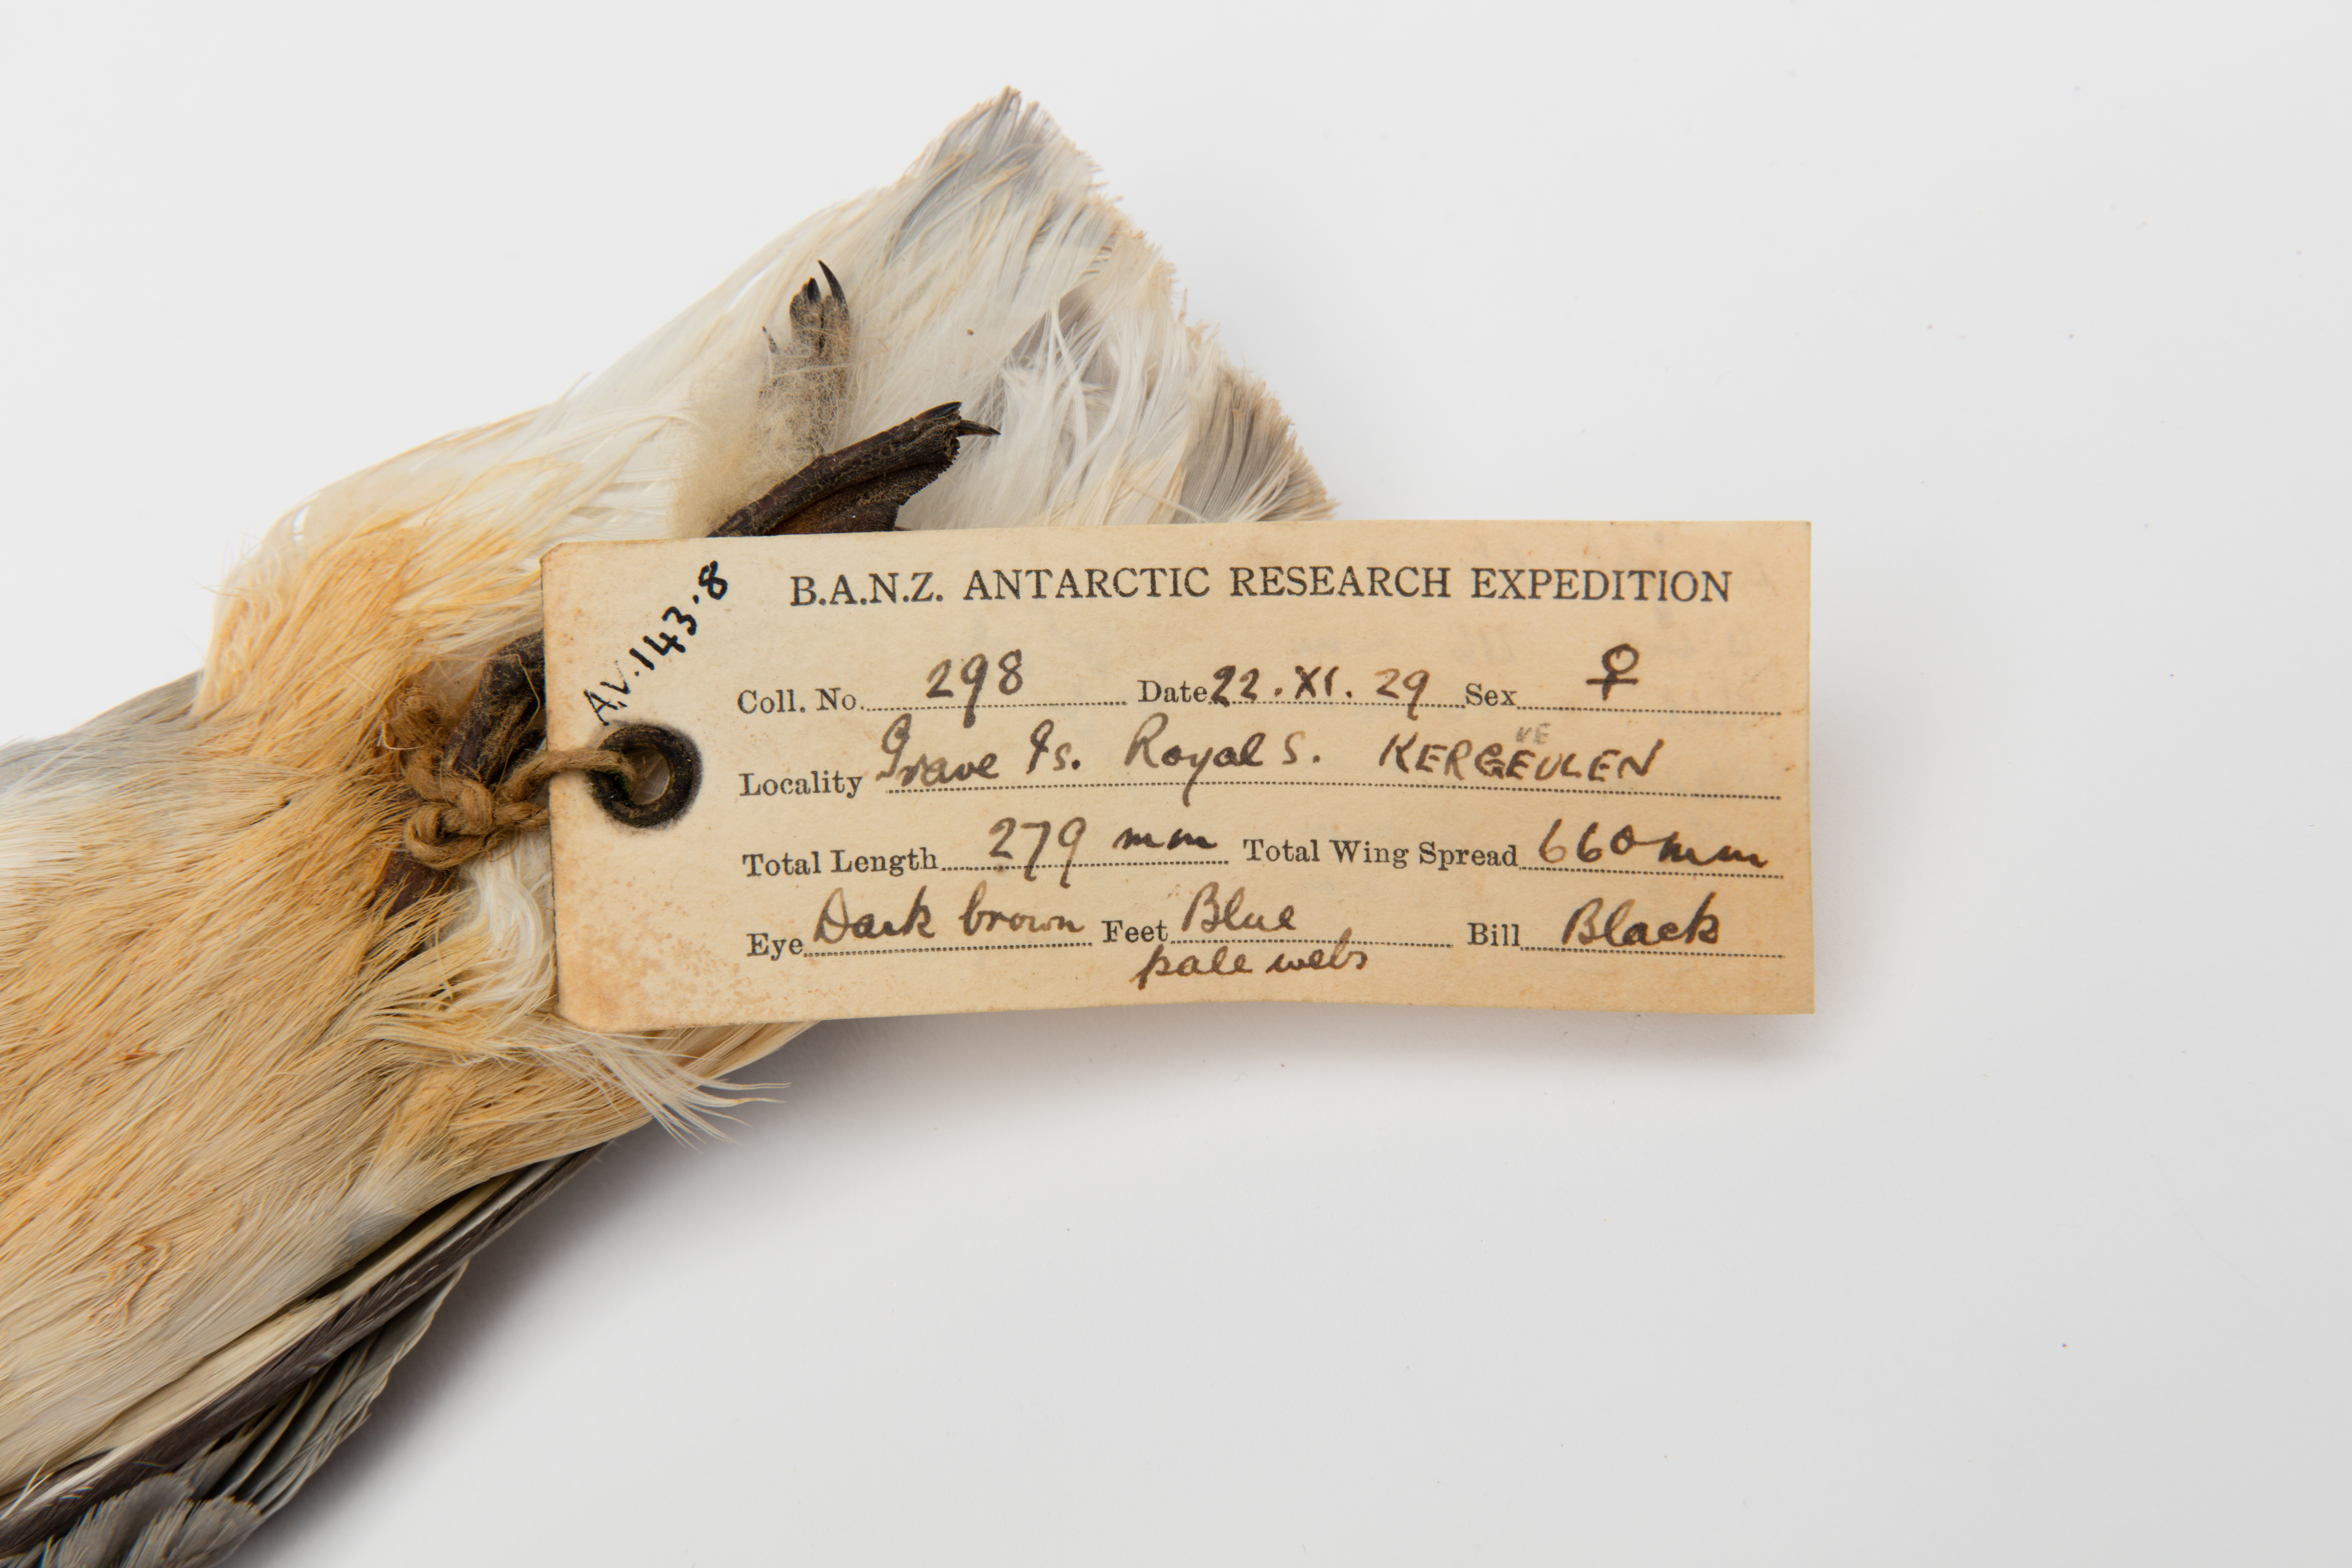 AV.143.8
B.A.N.Z. ANTARCTIC RESEARCH EXPEDITION
Coll. No. 298 Date 22.XI.29 Sex ♀
VE
Locality Grave Is. Royal S. KERGEULEN
Total Length 279 mm Total Wing Spread 660 mm
Eye Dark brown Feet Blue Bill Black
pale webs